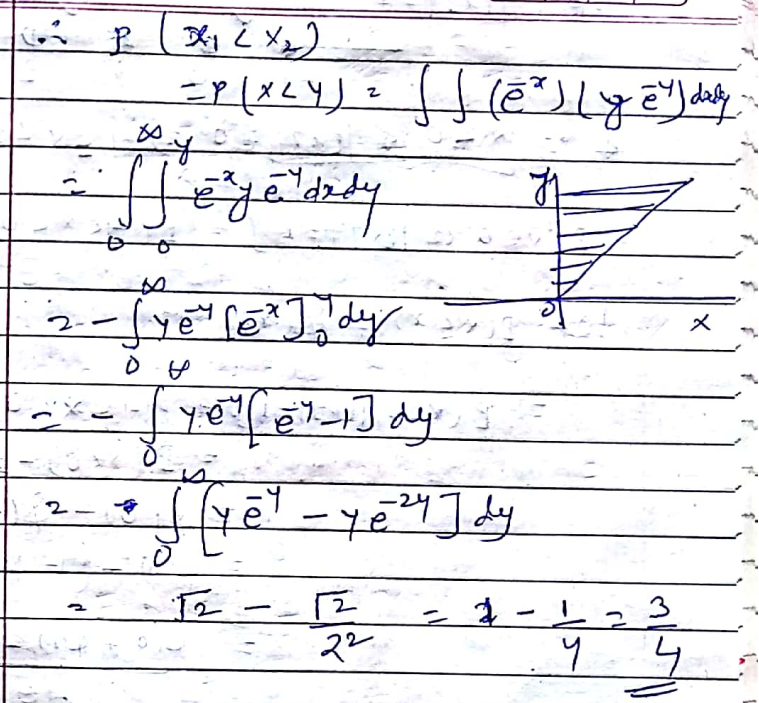 ∴ P (X₁ < X₂)
= P (X < Y) = ∫ ∫ (e⁻ˣ) (y e⁻ʸ) dxdy
= ∫₀^∞ ∫₀^y e⁻ˣ y e⁻ʸ dx dy
y
0
x
= - ∫₀^∞ y e⁻ʸ [e⁻ˣ]₀^y dy
= - ∫₀^∞ y e⁻ʸ [e⁻ʸ - 1] dy
= ∫₀^∞ [y e⁻ʸ - y e⁻²ʸ] dy
= Γ2 - Γ2/2² = 1 - 1/4 = 3/4